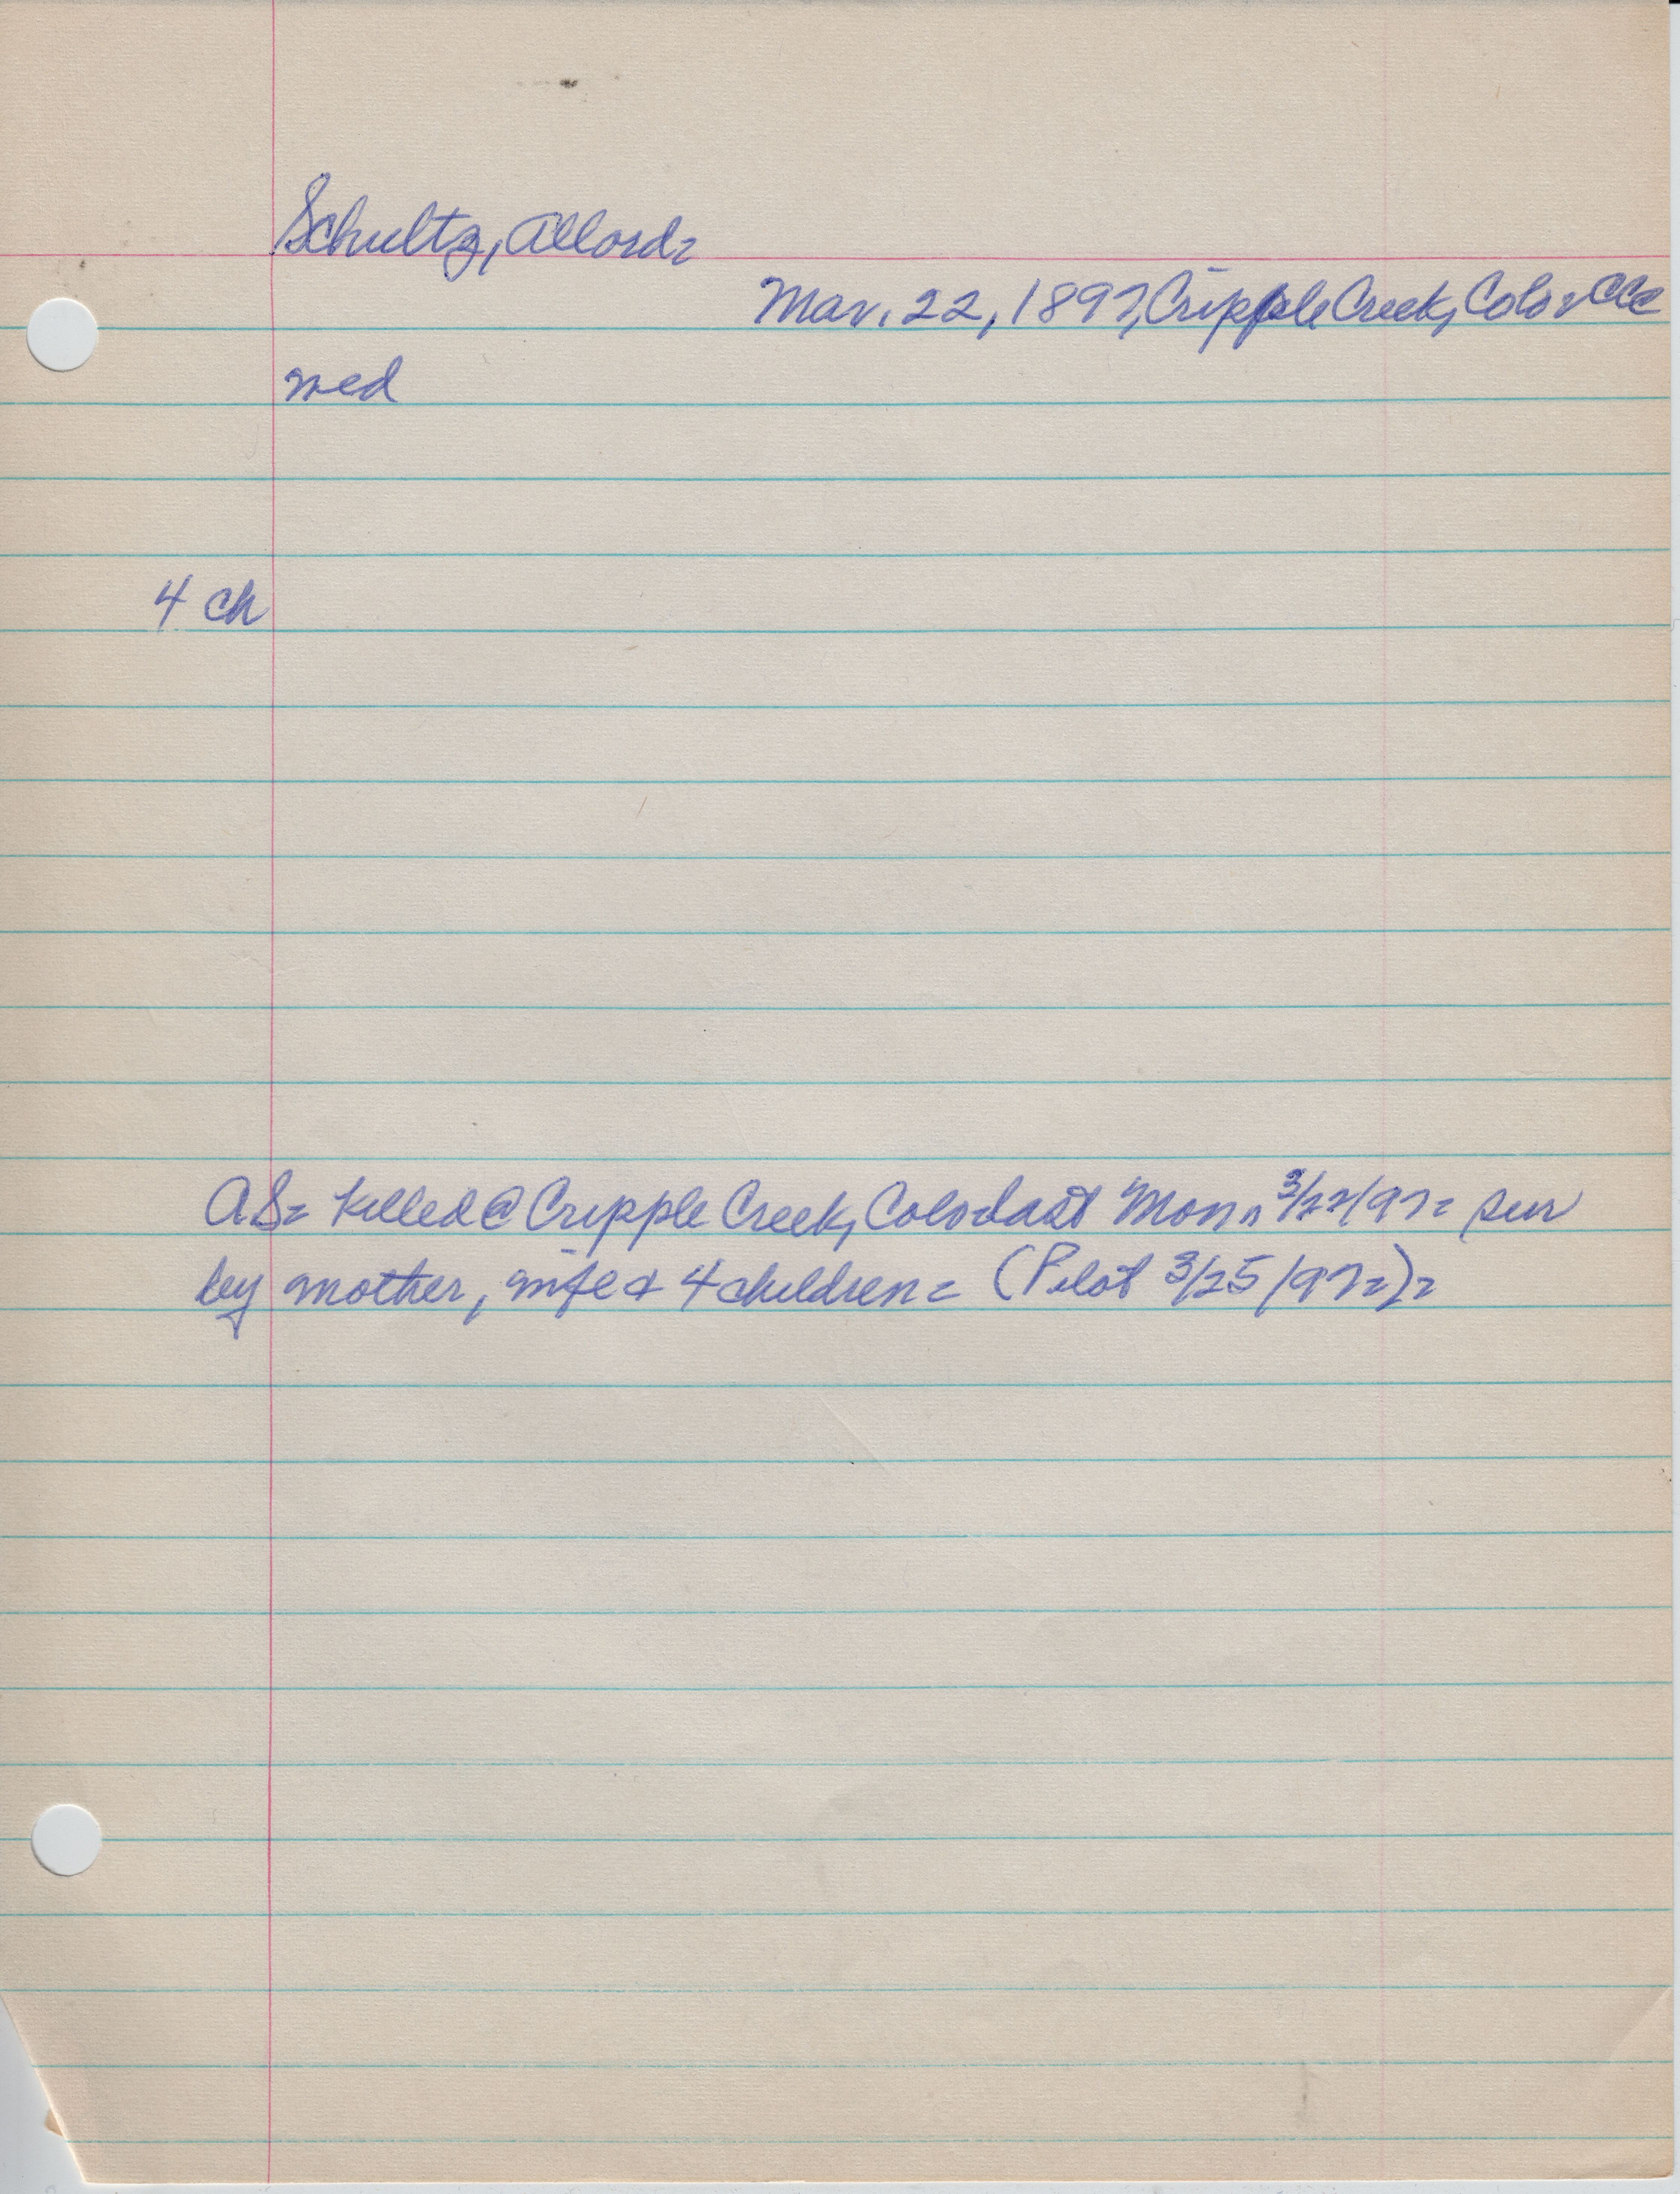 Schultz, Allord=
Mar. 22, 1897, Cripple Creek, Colo= acc
wed
4 ch
AS= killed @ Cripple Creek, Colo= last Mon= 3/22/97= sur
by mother, wife & 4 children= (Pilot 3/25/97=)=